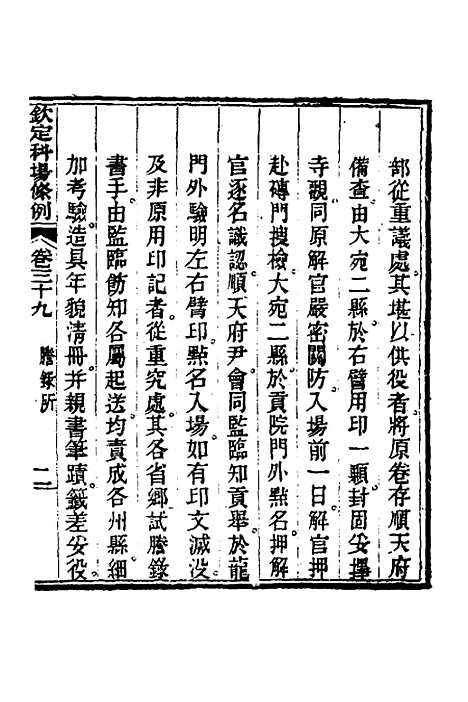 部從重議處其堪以供役者將原卷存順天府
備查由大宛二縣於右臂用印一顆封固安擇
寺觀同原解官嚴密關防入場前一日解官押
赴磚門搜檢大宛二縣於貢院門外點名押解
官逐名識認順天府尹會同監臨知貢舉於龍
門外驗明左右臂印點名入場如有印文滅没
及非原用印記者從重究處其各省鄉試謄錄
書手由監臨飭知各屬起送均責成各州縣細
加考驗造具年貌清冊并親書筆蹟籤差妥役
欽定科場條例 卷三十九 謄錄所 二